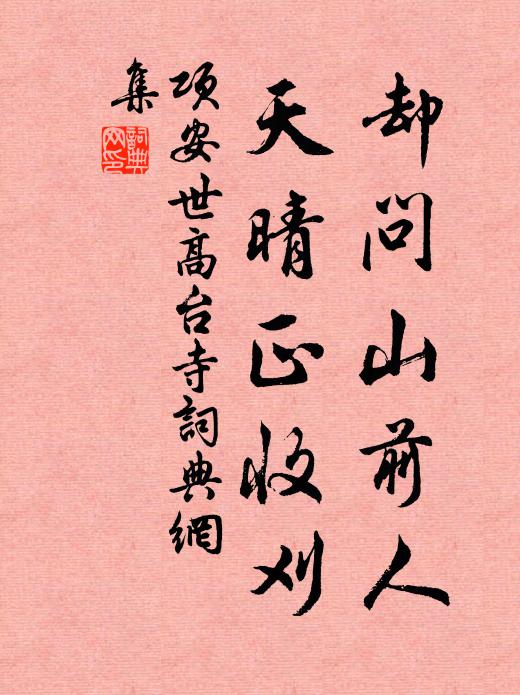 却問山前人
天晴正收刈
項安世高台寺詞典網
集
詞典
网印